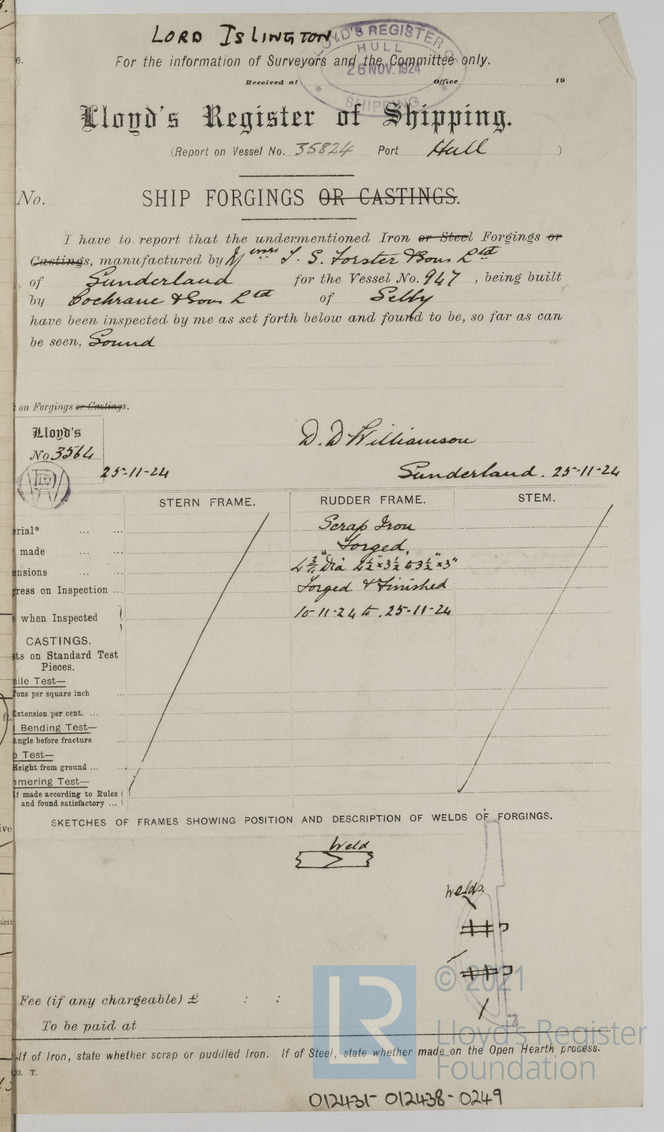 LORD ISLINGTON
For the information of Surveyors and the Committee only.
LLOYD'S REGISTER OF
HULL
26 NOV. 1924
SHIPPING
Received at Office 19
Lloyd's Register of Shipping.
(Report on Vessel No. 35824 Port Hull )
No.
SHIP FORGINGS OR CASTINGS.
I have to report that the undermentioned Iron or Steel Forgings or
Castings, manufactured by Messrs T. S. Forster & Sons Ltd
of Sunderland for the Vessel No. 947 , being built
by Cochrane & Sons Ltd of Selby
have been inspected by me as set forth below and found to be, so far as can
be seen, Sound
on Forgings or Castings.
Lloyd's
No 3564
25-11-24
D. D Williamson
Sunderland. 25-11-24
STERN FRAME. RUDDER FRAME. STEM.
erial* ... ... Scrap Iron
made ... ... Forged
ensions ... ... 4¾" Dia 4½"×3½ to 3½"×3"
ress on Inspection ... Forged & Finished
when Inspected 10-11-24 to 25-11-24
CASTINGS.
ts on Standard Test
Pieces.
sile Test—
Tons per square inch ...
Extension per cent. ... ...
Bending Test—
Angle before fracture ...
p Test—
Height from ground ... ...
mmering Test—
If made according to Rules
and found satisfactory ...
SKETCHES OF FRAMES SHOWING POSITION AND DESCRIPTION OF WELDS OF FORGINGS.
Weld
Welds.
Fee (if any chargeable) £ : :
To be paid at
If of Iron, state whether scrap or puddled Iron. If of Steel, state whether made on the Open Hearth process.
23. T.
LR
© 2021
Lloyd's Register
Foundation
012431-012438-0249